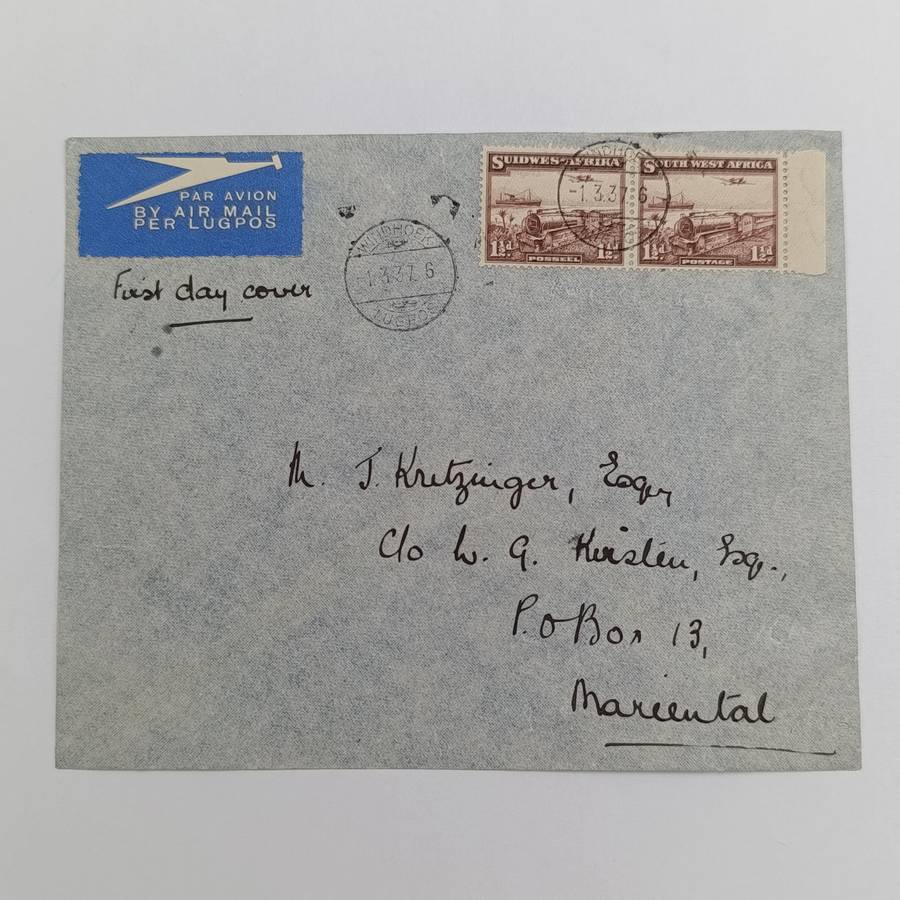 PAR AVION
BY AIR MAIL
PER LUGPOS
First day cover
WINDHOEK
-1.3.37. 6
LUGPOS
SUIDWES-AFRIKA
1½d 1½d
POSSEEL
SOUTH WEST AFRICA
1½d 1½d
POSTAGE
WINDHOEK
-1.3.37. 6
M. J. Kretzinger, Esq,
C/o W. G. Kirsten, Esq.,
P.O Box 13,
Mariental